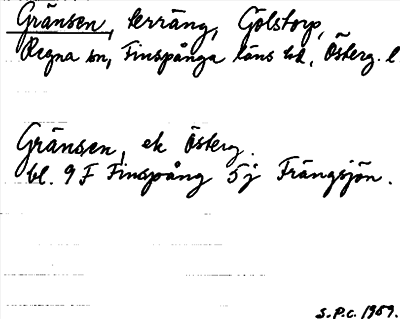 Gränsen, terräng, Gölstorp,
Regna sn, Finspånga läns hd, Österg. l
Gränsen, ek Österg.
bl. 9 F Finspång 5j Frängsjön.
S.P.C. 1959.